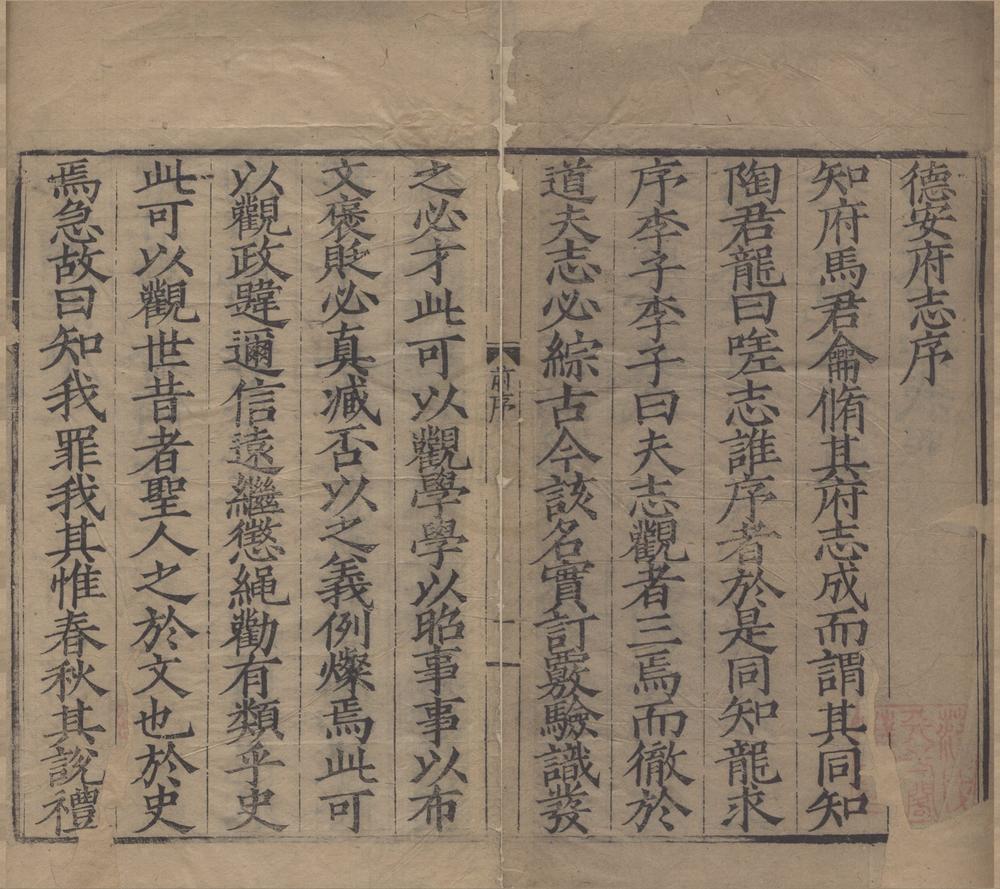 德安府志序
知府馬君龠脩其府志成而謂其同知
陶君龍曰嗟志誰序者於是同知龍求
序李子李子曰夫志觀者三焉而徹於
道夫志必綜古今該名實訂覈驗識發
前序
一
之必才此可以觀學學以昭事事以布
文褒貶必真臧否以之義例燦焉此可
以觀政韙邇信遠繼懲繩勸有類乎史
此可以觀世昔者聖人之於文也於史
焉急故曰知我罪我其惟春秋其說禮